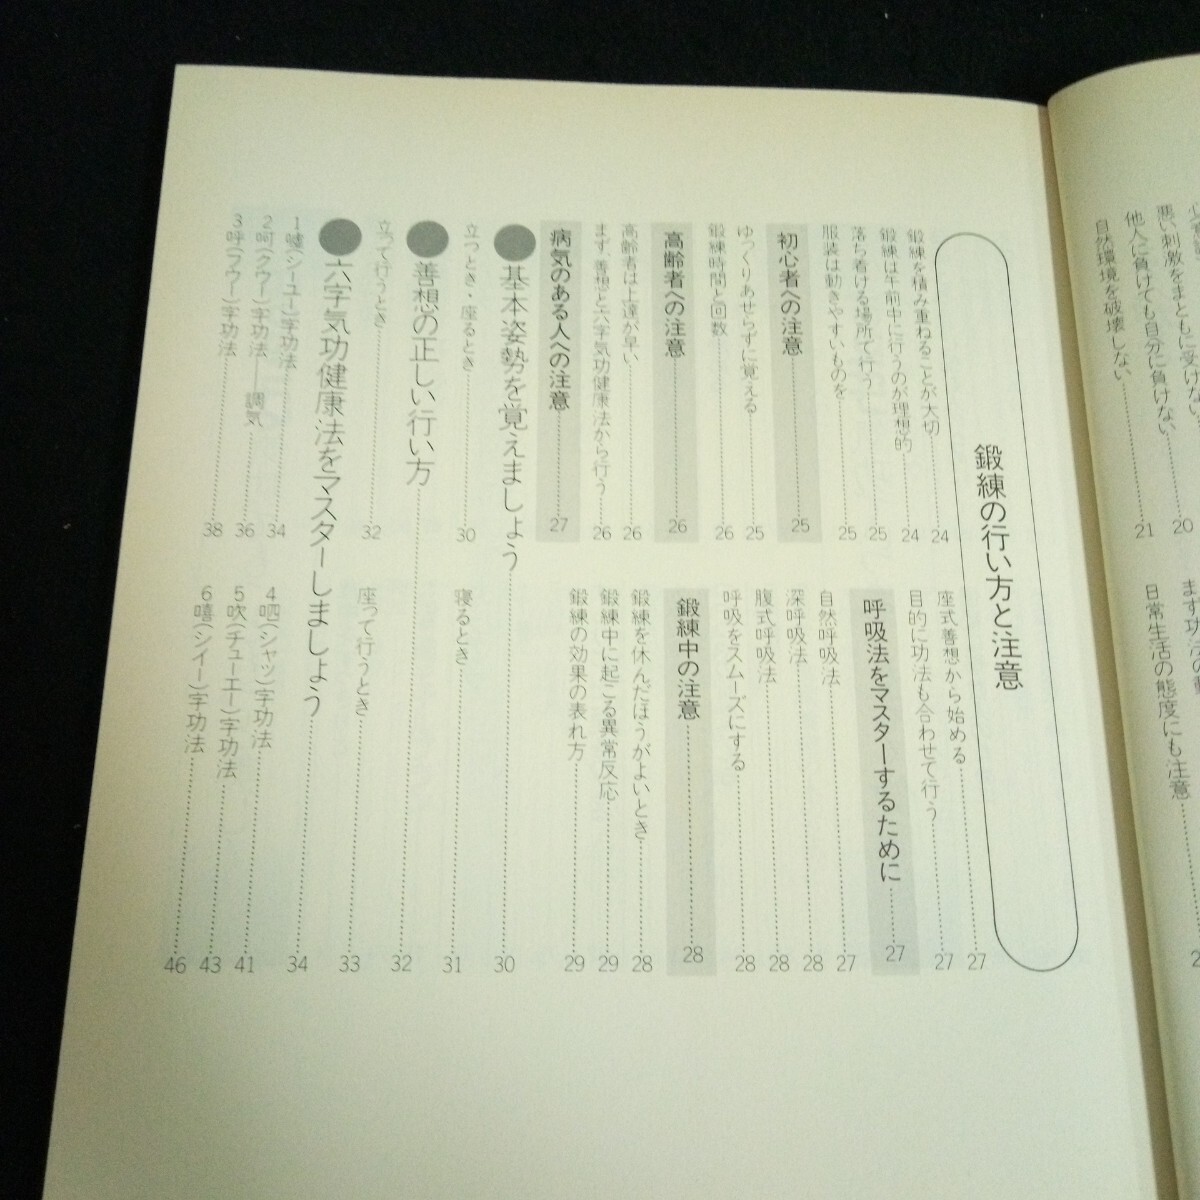 悪い刺激をまともに受けない
他人に負けても自分に負けない……20
自然環境を破壊しない……21
日常生活の態度にも注意
鍛練の行い方と注意
鍛練を積み重ねることが大切……24
鍛練は午前中に行うのが理想的……24
落ち着ける場所で行う……25
服装は動きやすいものを……25
初心者への注意……25
ゆっくりあせらずに覚える……25
鍛練時間と回数……26
高齢者への注意……26
高齢者は上達が早い……26
まず、善想と六字気功健康法から行う……26
病気のある人への注意……27
座式善想から始める……27
目的に功法も合わせて行う……27
呼吸法をマスターするために……27
自然呼吸法……27
深呼吸法……28
腹式呼吸法……28
呼吸をスムーズにする……28
鍛練中の注意……28
鍛練を休んだほうがよいとき……28
鍛練中に起こる異常反応……29
鍛練の効果の表れ方……29
●基本姿勢を覚えましょう……30
立つとき・座るとき……30
寝るとき……31
●善想の正しい行い方……32
立って行うとき……32
座って行うとき……33
●六字気功健康法をマスターしましょう……34
1 噓(シーユー)字功法……34
2 呵(クウー)字功法——調気……36
3 呼(フウー)字功法……38
4 呬(シャッ)字功法……41
5 吹(チューエー)字功法……43
6 嘻(シイー)字功法……46